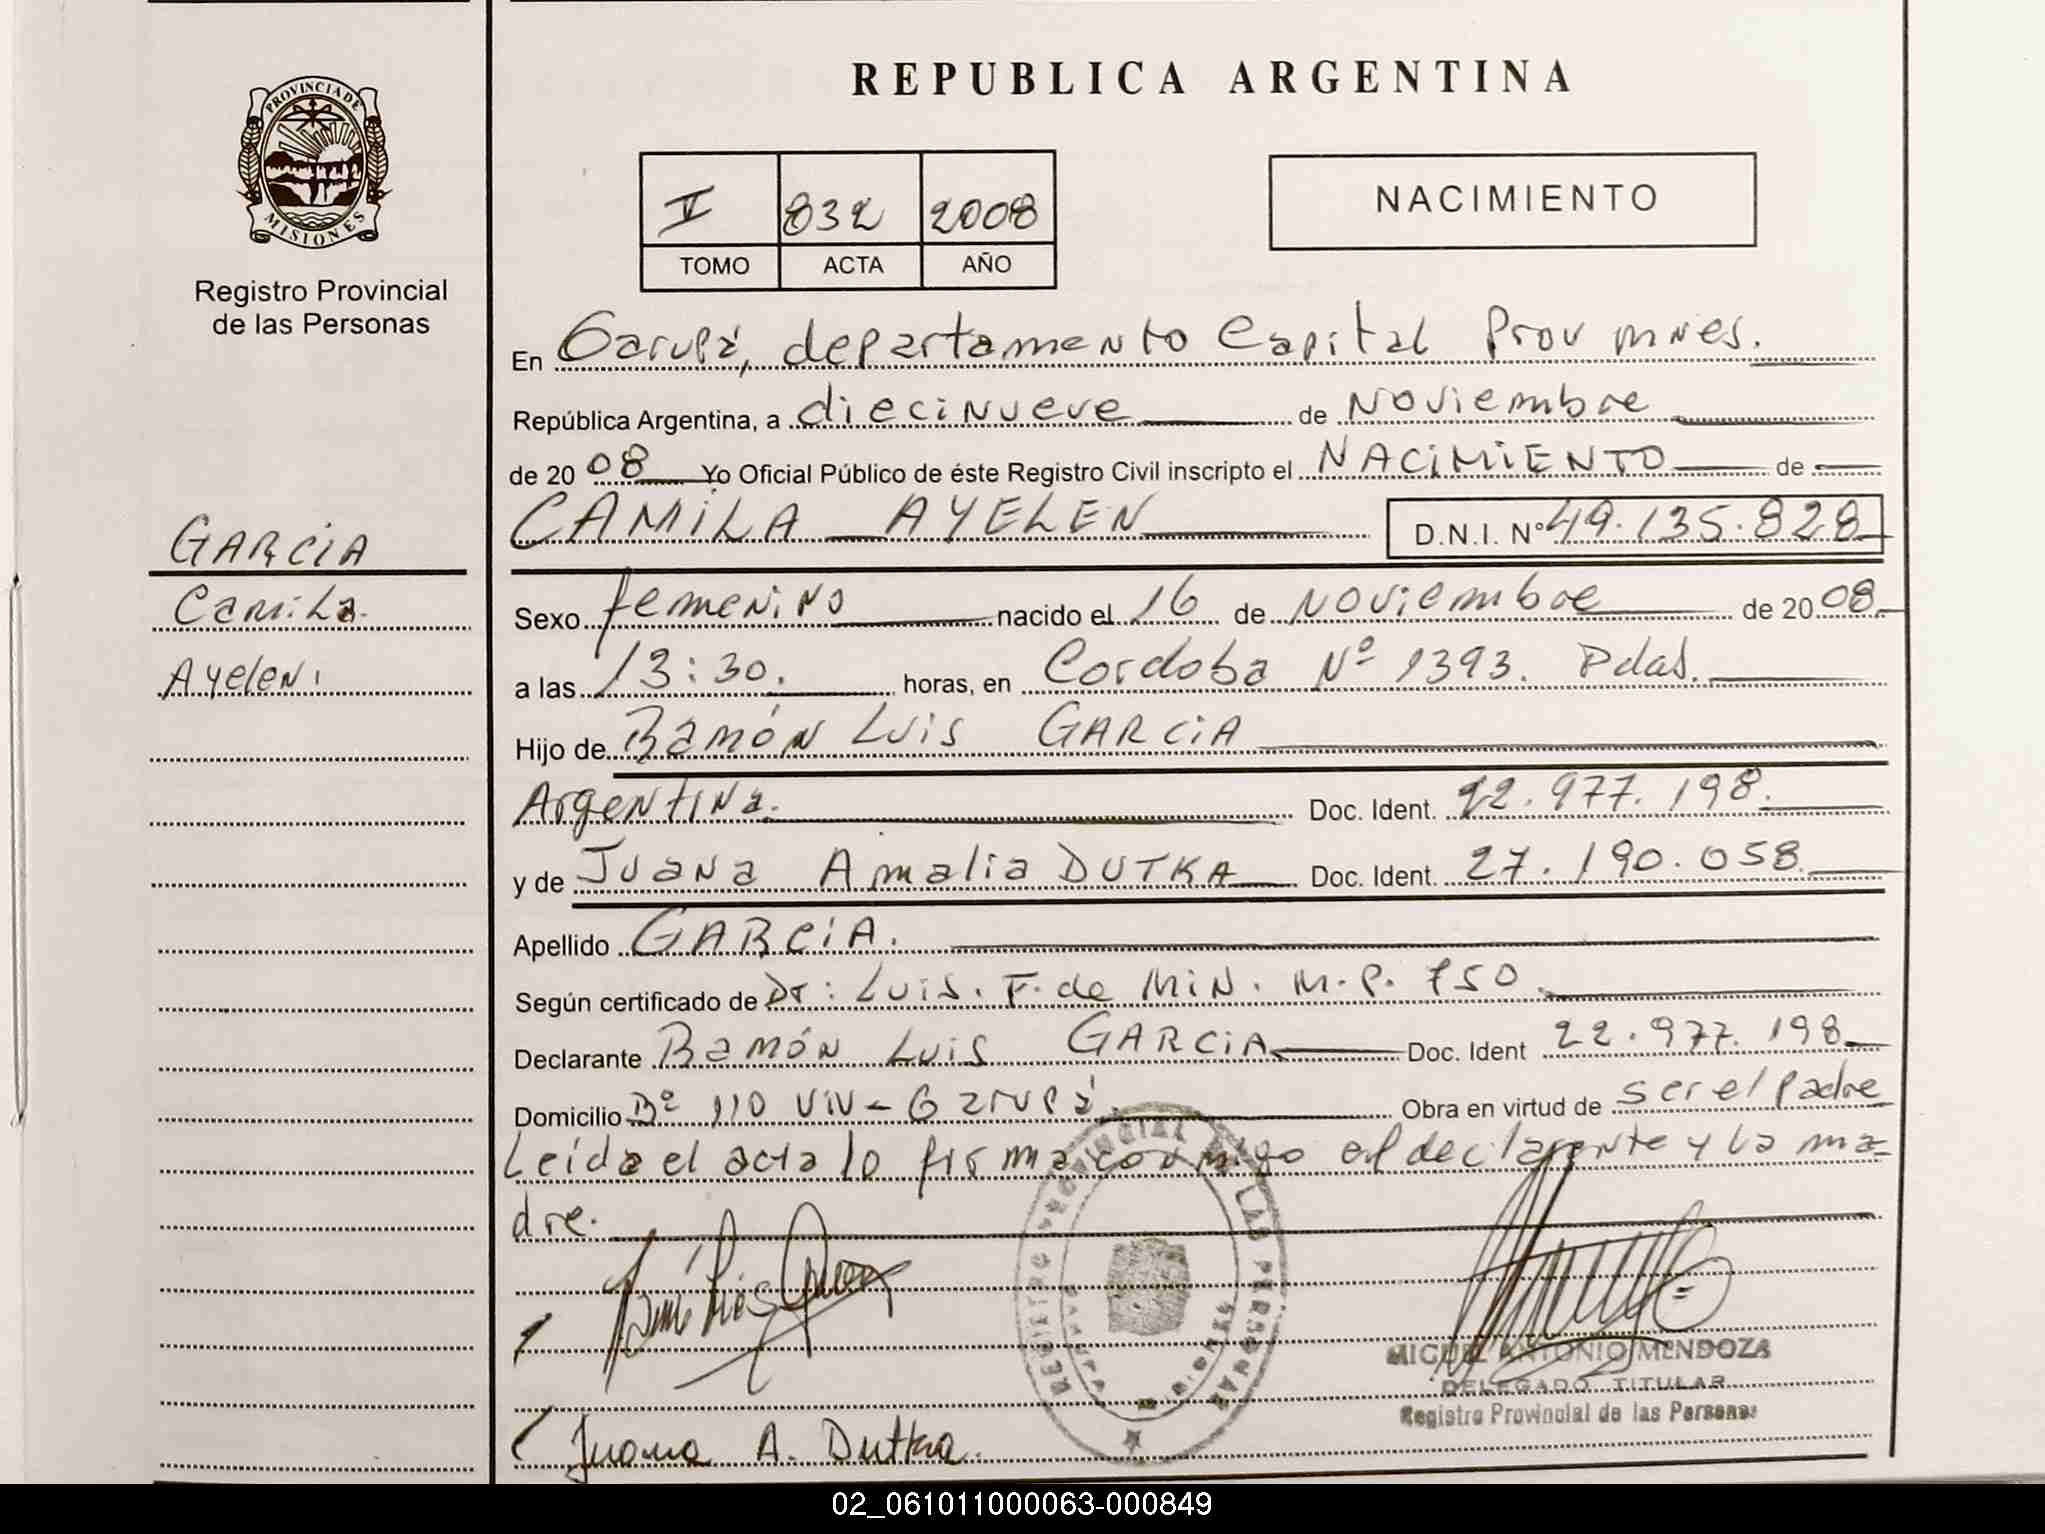 REPUBLICA ARGENTINA
PROVINCIA DE
MISIONES
Registro Provincial
de las Personas
832 2008
TOMO ACTA AÑO
NACIMIENTO
En Garupá, departamento Capital Prov mnes.
República Argentina, a diecinueve de Noviembre
de 2008 Yo Oficial Público de éste Registro Civil inscripto el NACIMIENTO de
CAMILA AYELEN D.N.I. Nº 49.135.828
GARCIA
Camila
Ayelen
Sexo femenino nacido el 16 de Noviembre de 2008
a las 13:30. horas, en Cordoba Nº 1393. Pdas.
Hijo de Ramón Luis GARCIA
Argentina. Doc. Ident. 22.977.198.
y de Juana Amalia DUTKA Doc. Ident. 27.190.058
Apellido GARCIA.
Según certificado de Dr: Luis. F. de Min. M.P. 750
Declarante Ramón Luis GARCIA Doc. Ident 22.977.198
Domicilio Bº 110 Viv - Garupá. Obra en virtud de ser el padre
Leída el acta lo firma conmigo el declarante y la ma-
dre.
REGISTRO PROVINCIAL DE LAS PERSONAS
MIGUEL ANTONIO MENDOZA
DELEGADO TITULAR
Registro Provincial de las Personas
Juana A. Dutka
02_061011000063-000849